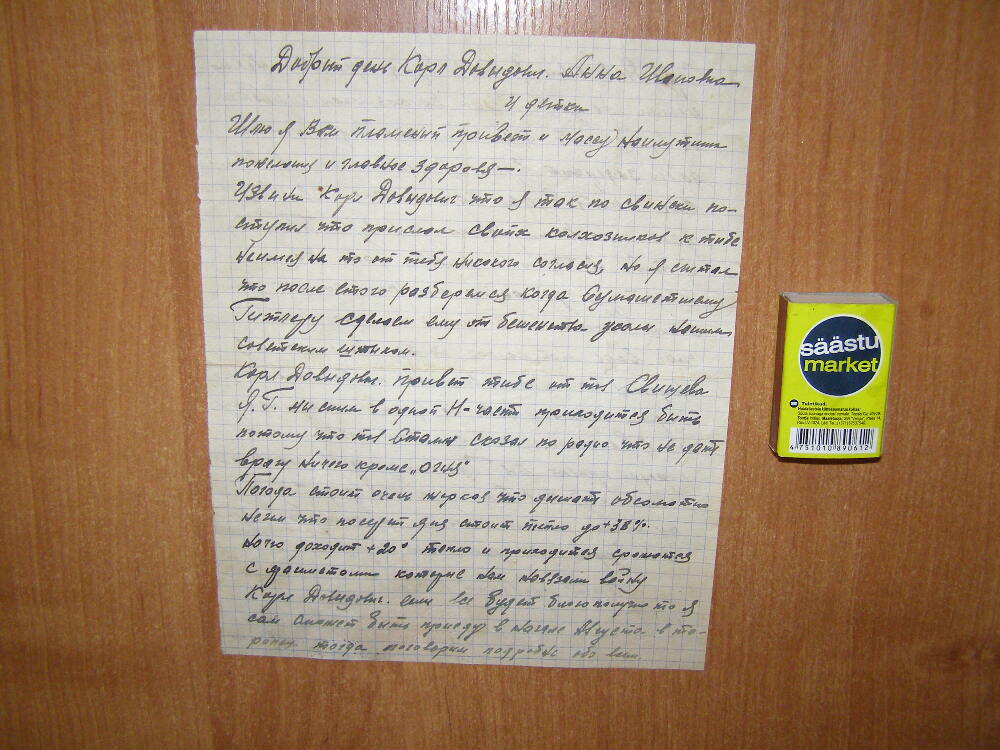 Добрый день Карл Довыдович. Анна Ивановна
и детки
Шлю я Вам пламеный привет и массу наилутших
пожелания и главное здоровя —.
Извини Карл Довыдович что я так по свински по-
ступил что прислал своих колхозников к тибе
неимея на то от тебя никокого согласия, но я считал
что после етого разберемся когда Сумашетшему
Гитлеру сделаем ему от бешенства уколы нашим
советским штыком.
Карл Довыдович. привет тибе от тов Свищева
Я. Г. мы с ним в одной Н-части приходится быть
потому что тов Сталин сказал по радио что не дать
врагу ничего кроме „огня"
Погода стоит очень жаркая что дышать обсолютно
нечим что посредит дня стоит тепло до +38%.
ночю доходит +20° тепло и приходится сражатся
с фашистами которые нам навязали войну
Карл Довидович. если все будет благополучно то я
сам может быть приеду в начале Августа в
тогда поговорим подробно обо всем.
säästu
market
Tuletikud
4 751010 890612